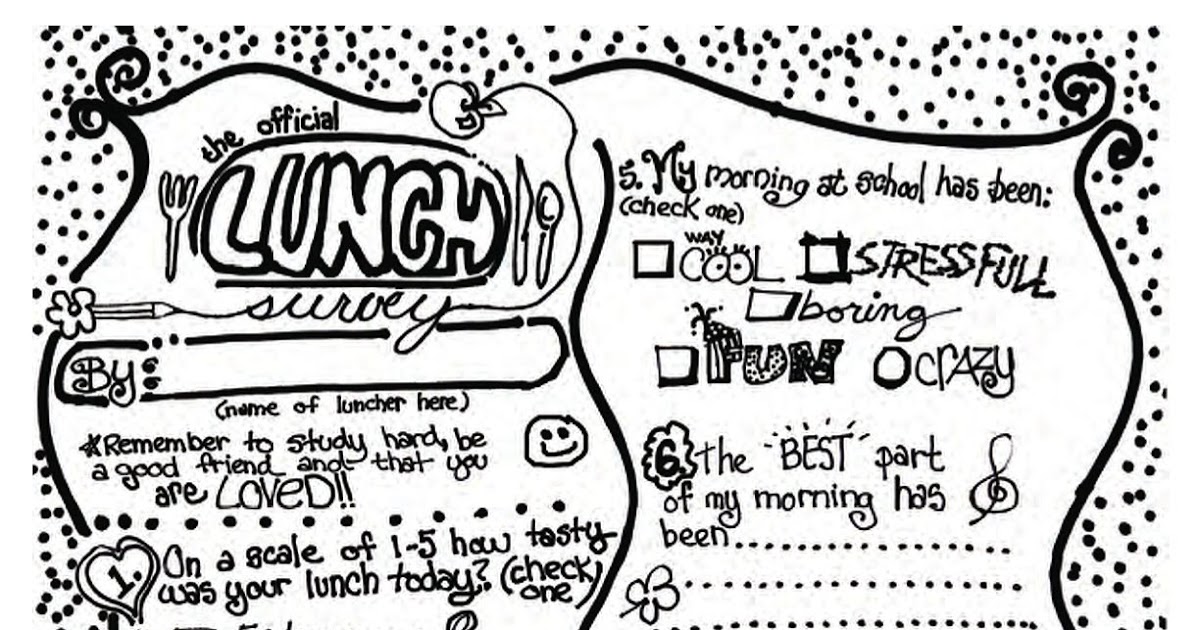 the official
LUNCH
survey
By:
(name of luncher here)
*Remember to study hard, be
a good friend and that you
are LOVED!!
1. On a scale of 1-5 how tasty
was your lunch today? (check
one)
5. My morning at school has been:
(check one)
WAY
COOL STRESSFULL
boring
FUN CRAZY
6. the BEST part
of my morning has
been..............................